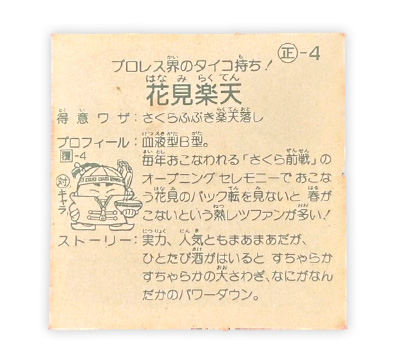 正-4
プロレス界のタイコ持ち!
花見楽天
得意ワザ:さくらふぶき楽天落し
プロフィール:血液型B型。
覆-4
毎年おこなわれる「さくら前戦」の
対キャラ
オープニングセレモニーでおこな
う花見のバック転を見ないと春が
こないという熱レツファンが多い!
ストーリー:実力、人気ともまあまあだが、
ひとたび酒がはいると すちゃらか
すちゃらかの大さわぎ、なにがなん
だかのパワーダウン。